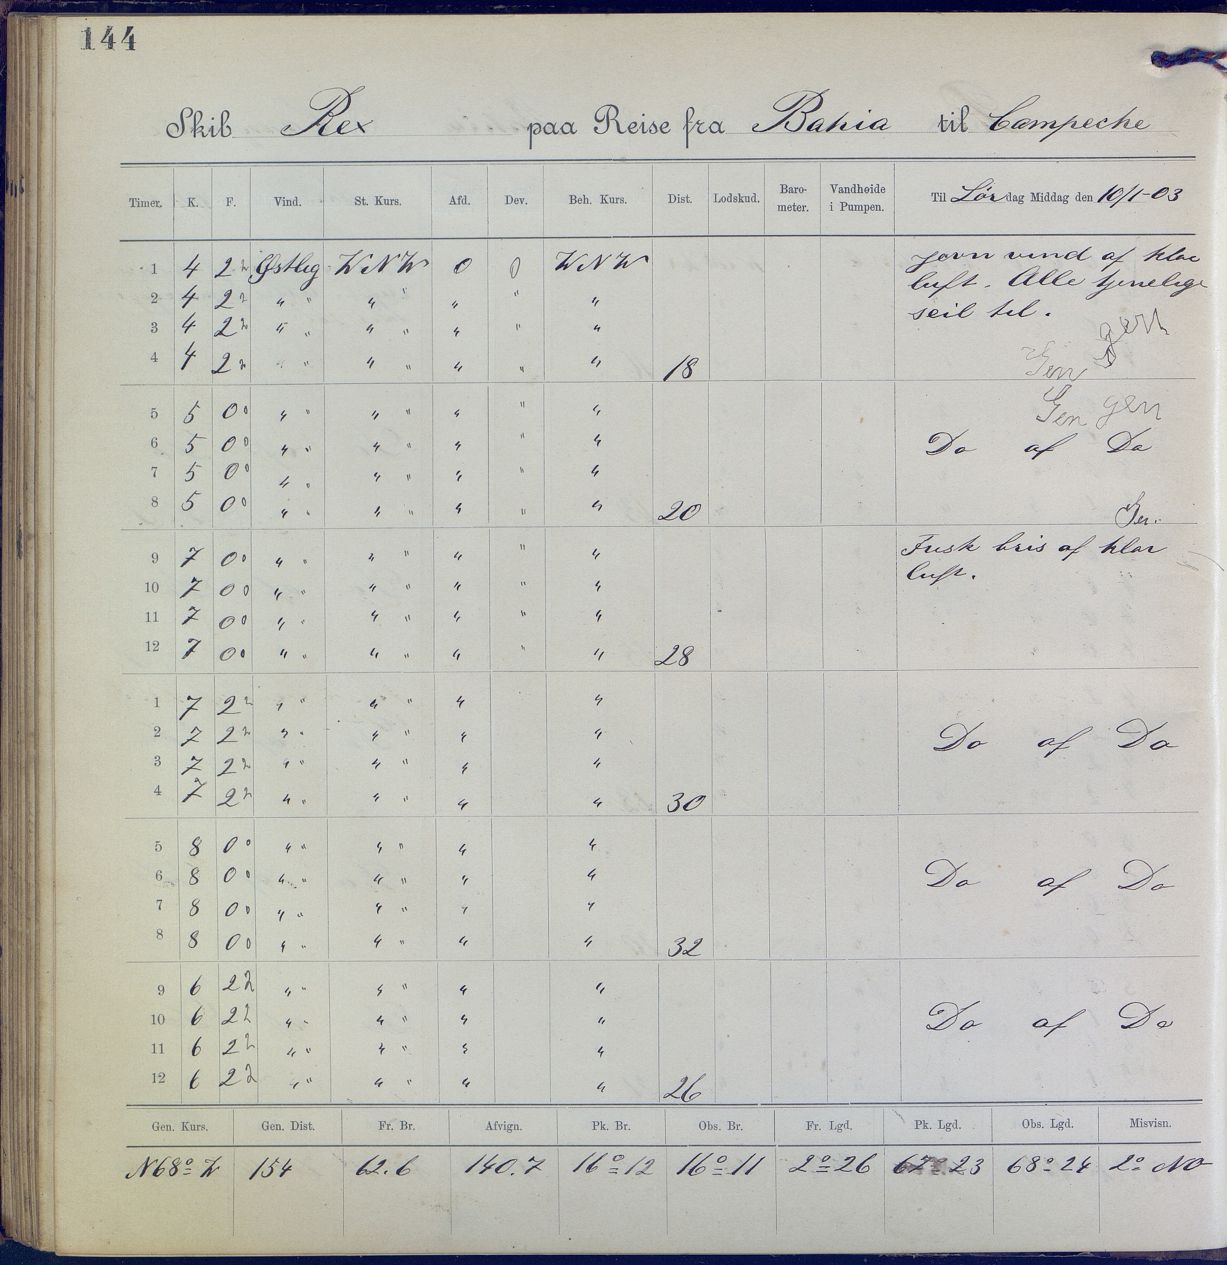 144
Skib Rex paa Reise fra Bahia til Campeche
Timer. K. F. Vind. St. Kurs. Afd. Dev. Beh. Kurs. Dist. Lodskud. Baro-meter. Vandhøide i Pumpen. Til Lørdag Middag den 10/1-03
1 4 2 2 Østlig WNW 0 0 WNW jevn vind af klar
2 4 2 2 " " " " " " " luft. Alle tjenelige
3 4 2 2 " " " " " " " seil til.
4 4 2 2 " " " " " " " 18
5 5 0 0 " " " " " " "
6 5 0 0 " " " " " " " Do af Do
7 5 0 0 " " " " " " "
8 5 0 0 " " " " " " " 20
9 7 0 0 " " " " " " " Frisk bris af klar
10 7 0 0 " " " " " " " luft.
11 7 0 0 " " " " " " "
12 7 0 0 " " " " " " " 28
1 7 2 2 " " " " " "
2 7 2 2 " " " " " " Do af Do
3 7 2 2 " " " " " "
4 7 2 2 " " " " " " 30
5 8 0 0 " " " " " "
6 8 0 0 " " " " " " Do af Do
7 8 0 0 " " " " " "
8 8 0 0 " " " " " " 32
9 6 2 2 " " " " " "
10 6 2 2 " " " " " " Do af Do
11 6 2 2 " " " " " "
12 6 2 2 " " " " " " 26
Gen. Kurs. Gen. Dist. Fr. Br. Afvign. Pk. Br. Obs. Br. Fr. Lgd. Pk. Lgd. Obs. Lgd. Misvisn.
N68°W 154 62.6 140.7 16°12 16°11 2°26 67°23 68°24 2° NO